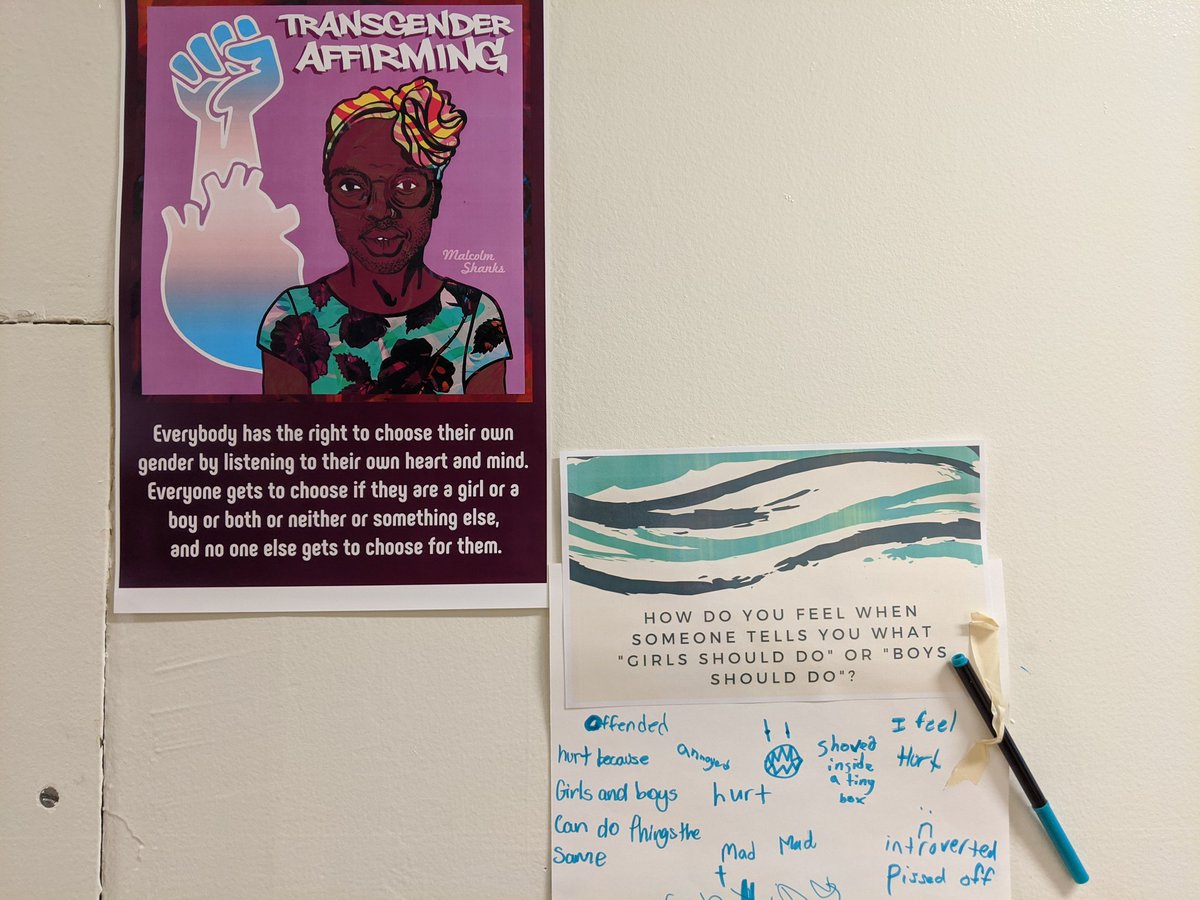 TRANSGENDER
AFFIRMING
Malcolm
Shanks
Everybody has the right to choose their own
gender by listening to their own heart and mind.
Everyone gets to choose if they are a girl or a
boy or both or neither or something else,
and no one else gets to choose for them.
HOW DO YOU FEEL WHEN
SOMEONE TELLS YOU WHAT
"GIRLS SHOULD DO" OR "BOYS
SHOULD DO"?
Offended
hurt because
Girls and boys
Can do things the
Same
annoyed
hurt
Mad
Mad
shoved
inside
a tiny
box
I feel
Hurt
introverted
Pissed off